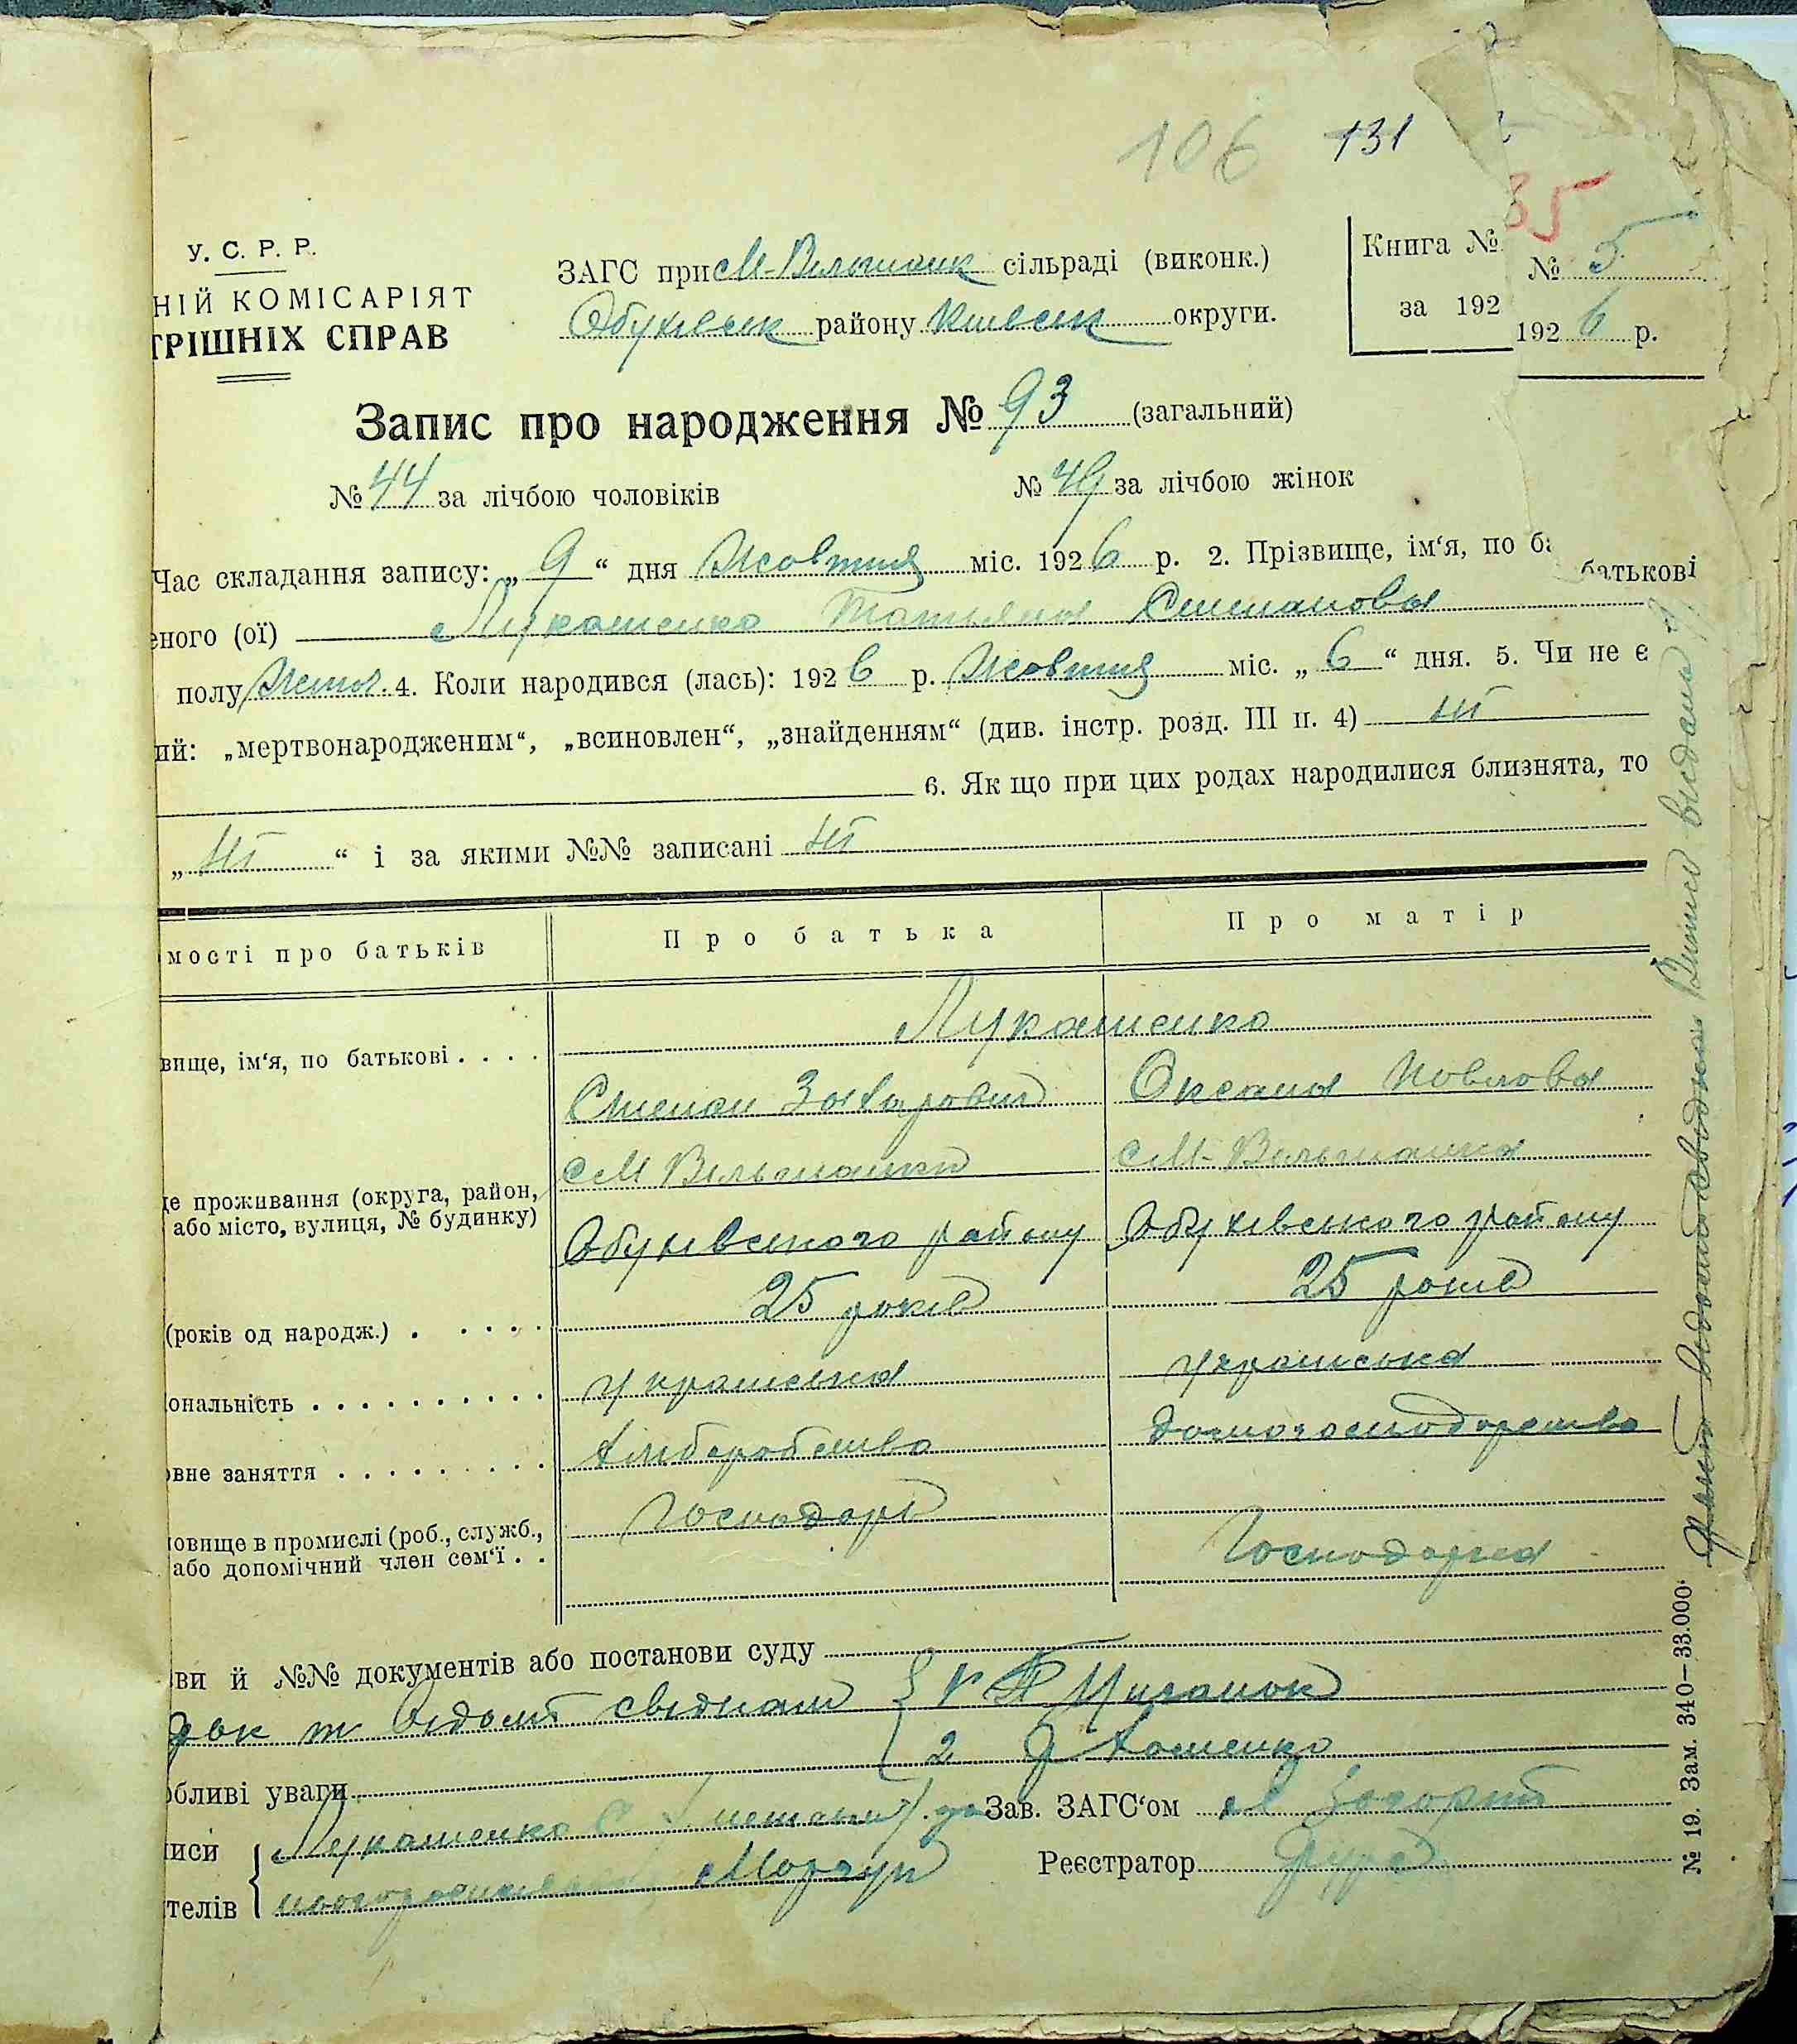 106 131
35
У. С. Р. Р.
НІЙ КОМІСАРІЯТ
ТРІШНІХ СПРАВ
ЗАГС при М-Вільшанк сільраді (виконк.)
Обухівськ району Київськ округи.
Книга № № 5
за 192 192 6 р.
Запис про народження № 93 (загальний)
№ 44 за лічбою чоловіків № 49 за лічбою жінок
Час складання запису: „ 9 “ дня Жовтня міс. 192 6 р. 2. Прізвище, ім‘я, по ба батькові
еного (ої) Лукашенко Татьяна Степанова
полу Жіноч. 4. Коли народився (лась): 192 6 р. Жовтня міс. „ 6 “ дня. 5. Чи не є
ий: „мертвонародженим“, „всиновлен“, „знайденням“ (див. інстр. розд. III п. 4) ні
6. Як що при цих родах народилися близнята, то
„ ні “ і за якими №№ записані ні
мості про батьків Про батька Про матір
вище, ім‘я, по батькові . . . . Лукашенко
Степан Захарович Оксана Павлова
М Вільшанки М-Вільшанка
де проживання (округа, район,
або місто, вулиця, № будинку)
Обухівського району Обухівського району
(років од народж.) . . . . . 25 років 25 років
ональність . . . . . . . . . . українська українська
овне заняття . . . . . . . . . хліборобство домогосподарство
овище в промислі (роб., служб.,
або допомічний член сем‘ї . .
Господарь Господарка
ви й №№ документів або постанови суду
відомі свідкам 1 Циганок
2 Хоменко
обливі уваги
иси Лукашенко Зав. ЗАГС‘ом
телів Моргун Реєстратор
№ 19. Зам. 340—33.000.
Виписа видана